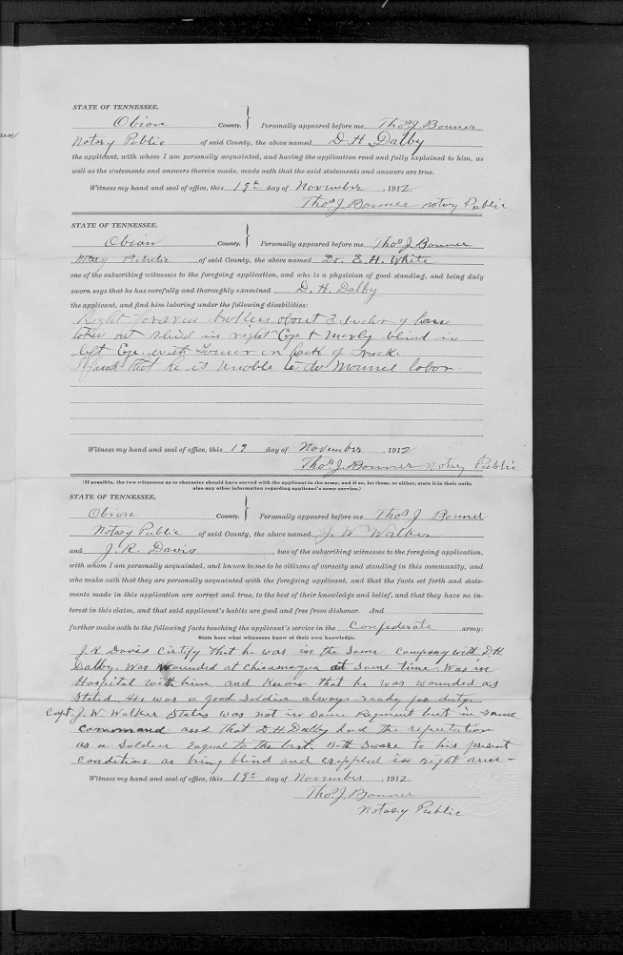 STATE OF TENNESSEE,
Obion County. } Personally appeared before me Thos J. Bonner
Notary Public of said County, the above named D H Dalby
the applicant, with whom I am personally acquainted, and having the application read and fully explained to him, as
well as the statements and answers therein made, made oath that the said statements and answers are true.
Witness my hand and seal of office, this 19th day of November, 1912
Thos J Bonner notary Public
STATE OF TENNESSEE,
Obion County. } Personally appeared before me Thos J Bonner
Notary Public of said County, the above named Dr. E. H. White
one of the subscribing witnesses to the foregoing application, and who is a physician of good standing, and being duly
sworn says that he has carefully and thoroughly examined D. H. Dalby
the applicant, and find him laboring under the following disabilities:
Right about 3 inches of bone
taken out blind in right Eye & nearly blind in
left Eye with in back of
that he is unable to do manuel labor
Witness my hand and seal of office, this 19 day of November, 1912
Thos J. Bonner Notary Public
(If possible, the two witnesses as to character should have served with the applicant in the army, and if so, let them, or either, state it in their oath;
also any other information regarding applicant's army service.)
STATE OF TENNESSEE,
Obion County. } Personally appeared before me Thos J Bonner
Notary Public of said County, the above named J. W. Walker
and J. R. Davis, two of the subscribing witnesses to the foregoing application,
with whom I am personally acquainted, and known to me to be citizens of veracity and standing in this community, and
who make oath that they are personally acquainted with the foregoing applicant, and that the facts set forth and state-
ments made in this application are correct and true, to the best of their knowledge and belief, and that they have no in-
terest in this claim, and that said applicant's habits are good and free from dishonor. And
further make oath to the following facts touching the applicant's service in the Confederate army:
State here what witnesses know of their own knowledge.
J. R. Davis Certify That he was in the Same Company with D. H.
Dalby. Was wounded at Chicamagua at Same time. Was in
Hospital with him and Know that he was wounded as
Stated. He was a good Soldier always ready for duty.
Capt J. W. Walker States was not in Same Regiment but in same
command and That D H Dalby had the reputation
as a Soldier equal to the best. Both swore to his present
condition as being blind and crippled in right arm -
Witness my hand and seal of office, this 19th day of November, 1912
Thos. J. Bonner
Notary Public